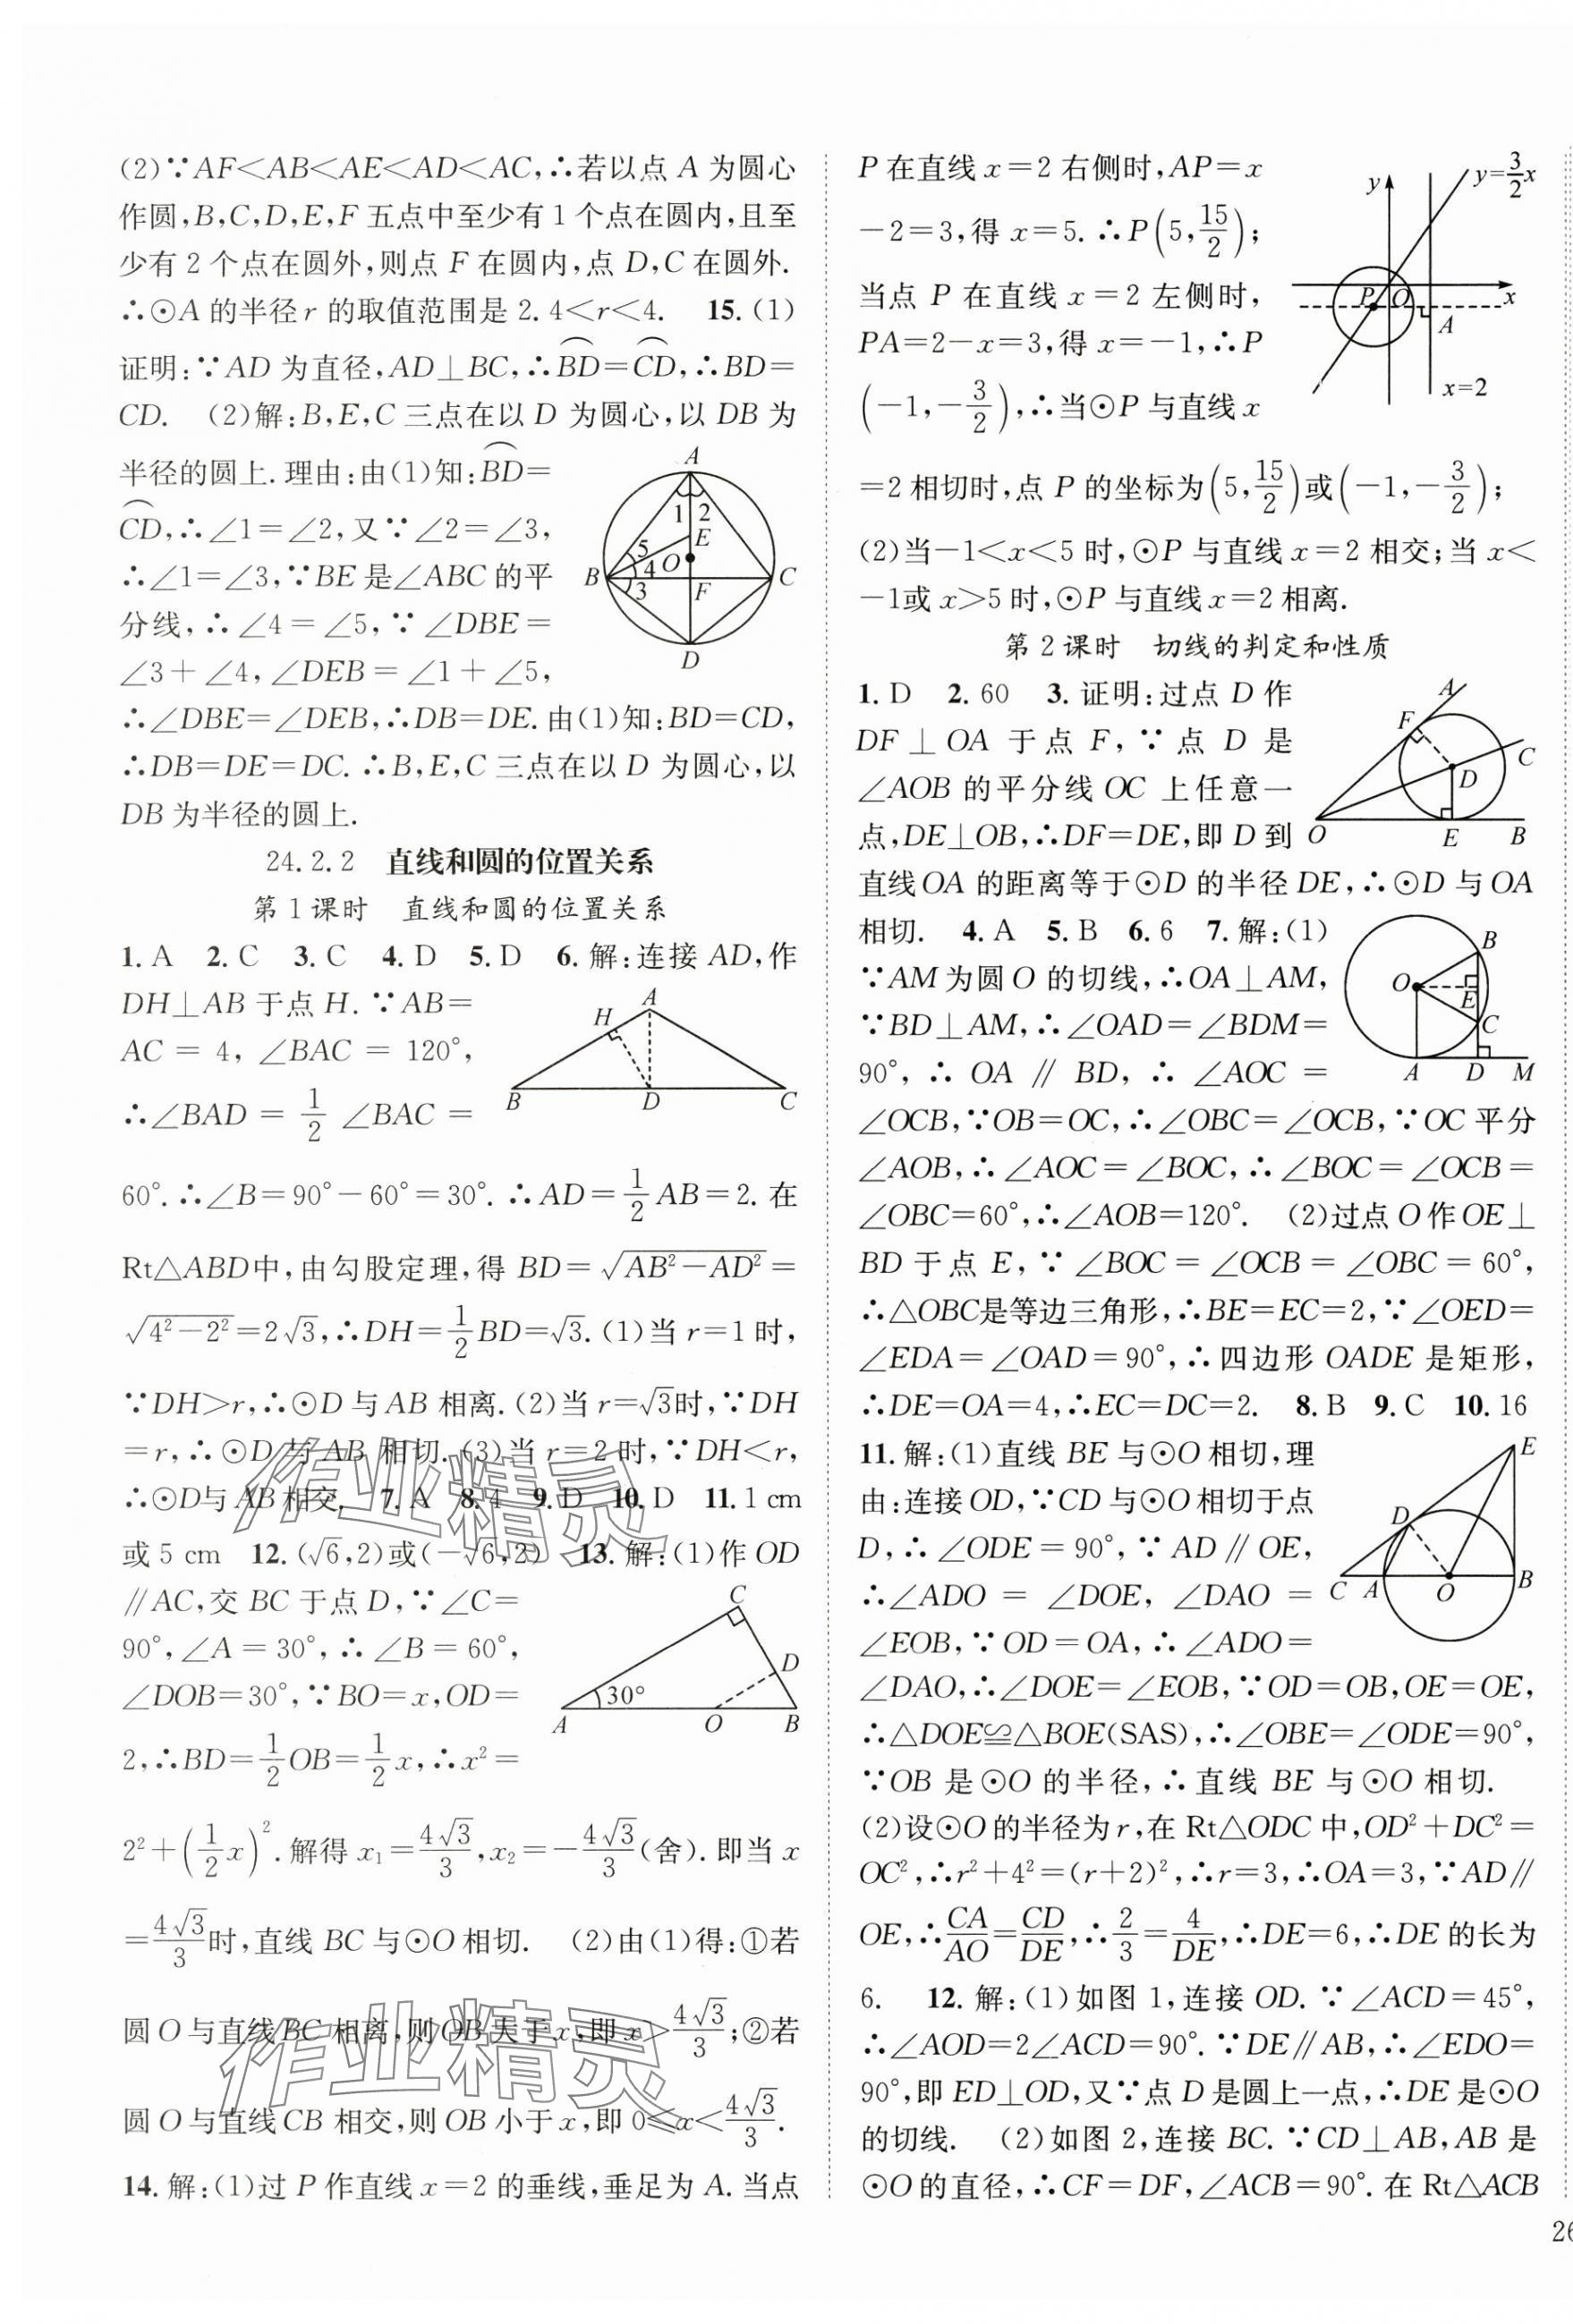 (2)∵AF<AB<AE<AD<AC,∴若以点 A 为圆心
作圆,B,C,D,E,F 五点中至少有 1 个点在圆内,且至
少有 2 个点在圆外,则点 F 在圆内,点 D,C 在圆外.
∴⊙A 的半径 r 的取值范围是 2.4<r<4. 15.(1)
证明:∵AD 为直径,AD⊥BC,∴⌒BD=⌒CD,∴BD=
CD. (2)解:B,E,C 三点在以 D 为圆心,以 DB 为
半径的圆上.理由:由(1)知:⌒BD=
⌒CD,∴∠1=∠2,又∵∠2=∠3,
∴∠1=∠3,∵BE 是∠ABC 的平
分线,∴∠4=∠5,∵∠DBE=
∠3+∠4,∠DEB=∠1+∠5,
A
1 2
E
5
4 O
B C
3 F
D
∴∠DBE=∠DEB,∴DB=DE.由(1)知:BD=CD,
∴DB=DE=DC.∴B,E,C 三点在以 D 为圆心,以
DB 为半径的圆上.
24.2.2 直线和圆的位置关系
第 1 课时 直线和圆的位置关系
1. A 2. C 3. C 4. D 5. D 6. 解:连接 AD,作
DH⊥AB 于点 H.∵AB=
AC=4,∠BAC=120°,
∴∠BAD=1/2∠BAC=
A
H
B D C
60°.∴∠B=90°-60°=30°.∴AD=1/2AB=2.在
Rt△ABD中,由勾股定理,得 BD=√(AB²-AD²)=
√(4²-2²)=2√3,∴DH=1/2BD=√3.(1)当 r=1 时,
∵DH>r,∴⊙D 与 AB 相离.(2)当 r=√3时,∵DH
=r,∴⊙D 与 AB 相切.(3)当 r=2 时,∵DH<r,
∴⊙D与 AB 相交. 7. A 8. 4 9. D 10. D 11. 1 cm
或 5 cm 12. (√6,2)或(-√6,2) 13. 解:(1)作 OD
∥AC,交 BC 于点 D,∵∠C=
90°,∠A=30°,∴∠B=60°,
∠DOB=30°,∵BO=x,OD=
2,∴BD=1/2OB=1/2x,∴x²=
C
D
30°
A O B
2²+(1/2x)².解得 x₁=4√3/3,x₂=-4√3/3(舍).即当 x
=4√3/3时,直线 BC 与⊙O 相切. (2)由(1)得:①若
圆 O 与直线BC 相离,则OB 大于 x,即 x>4√3/3;②若
圆 O 与直线CB 相交,则 OB 小于 x,即 0≤x<4√3/3.
14. 解:(1)过 P 作直线 x=2 的垂线,垂足为 A.当点
作业精灵
作业精灵
P 在直线 x=2 右侧时,AP=x
-2=3,得 x=5.∴P(5,15/2);
当点 P 在直线 x=2 左侧时,
PA=2-x=3,得 x=-1,∴P
(-1,-3/2),∴当⊙P 与直线 x
y y=3/2x
P O x
A
x=2
=2 相切时,点 P 的坐标为(5,15/2)或(-1,-3/2);
(2)当-1<x<5 时,⊙P 与直线 x=2 相交;当 x<
-1或 x>5 时,⊙P 与直线 x=2 相离.
第 2 课时 切线的判定和性质
1. D 2. 60 3. 证明:过点 D 作
DF⊥OA 于点 F,∵点 D 是
∠AOB 的平分线 OC 上任意一
点,DE⊥OB,∴DF=DE,即 D 到
A
F
C
D
O E B
直线OA 的距离等于⊙D 的半径 DE,∴⊙D 与 OA
相切. 4. A 5. B 6. 6 7. 解:(1)
∵AM 为圆 O 的切线,∴OA⊥AM,
∵BD⊥AM,∴∠OAD=∠BDM=
90°,∴OA∥BD,∴∠AOC=
B
O
E
C
A D M
∠OCB,∵OB=OC,∴∠OBC=∠OCB,∵OC 平分
∠AOB,∴∠AOC=∠BOC,∴∠BOC=∠OCB=
∠OBC=60°,∴∠AOB=120°. (2)过点 O 作 OE⊥
BD 于点 E,∵∠BOC=∠OCB=∠OBC=60°,
∴△OBC是等边三角形,∴BE=EC=2,∵∠OED=
∠EDA=∠OAD=90°,∴四边形 OADE 是矩形,
∴DE=OA=4,∴EC=DC=2. 8. B 9. C 10. 16
11. 解:(1)直线 BE 与⊙O 相切,理
由:连接 OD,∵CD 与⊙O 相切于点
D,∴∠ODE=90°,∵AD∥OE,
∴∠ADO=∠DOE,∠DAO=
∠EOB,∵OD=OA,∴∠ADO=
E
D
C A O B
∠DAO,∴∠DOE=∠EOB,∵OD=OB,OE=OE,
∴△DOE≌△BOE(SAS),∴∠OBE=∠ODE=90°,
∵OB 是⊙O 的半径,∴直线 BE 与⊙O 相切.
(2)设⊙O 的半径为 r,在 Rt△ODC 中,OD²+DC²=
OC²,∴r²+4²=(r+2)²,∴r=3,∴OA=3,∵AD∥
OE,∴CA/AO=CD/DE,∴2/3=4/DE,∴DE=6,∴DE 的长为
6. 12. 解:(1)如图 1,连接 OD.∵∠ACD=45°,
∴∠AOD=2∠ACD=90°.∵DE∥AB,∴∠EDO=
90°,即 ED⊥OD,又∵点 D 是圆上一点,∴DE 是⊙O
的切线. (2)如图 2,连接 BC.∵CD⊥AB,AB 是
⊙O 的直径,∴CF=DF,∠ACB=90°.在 Rt△ACB
26